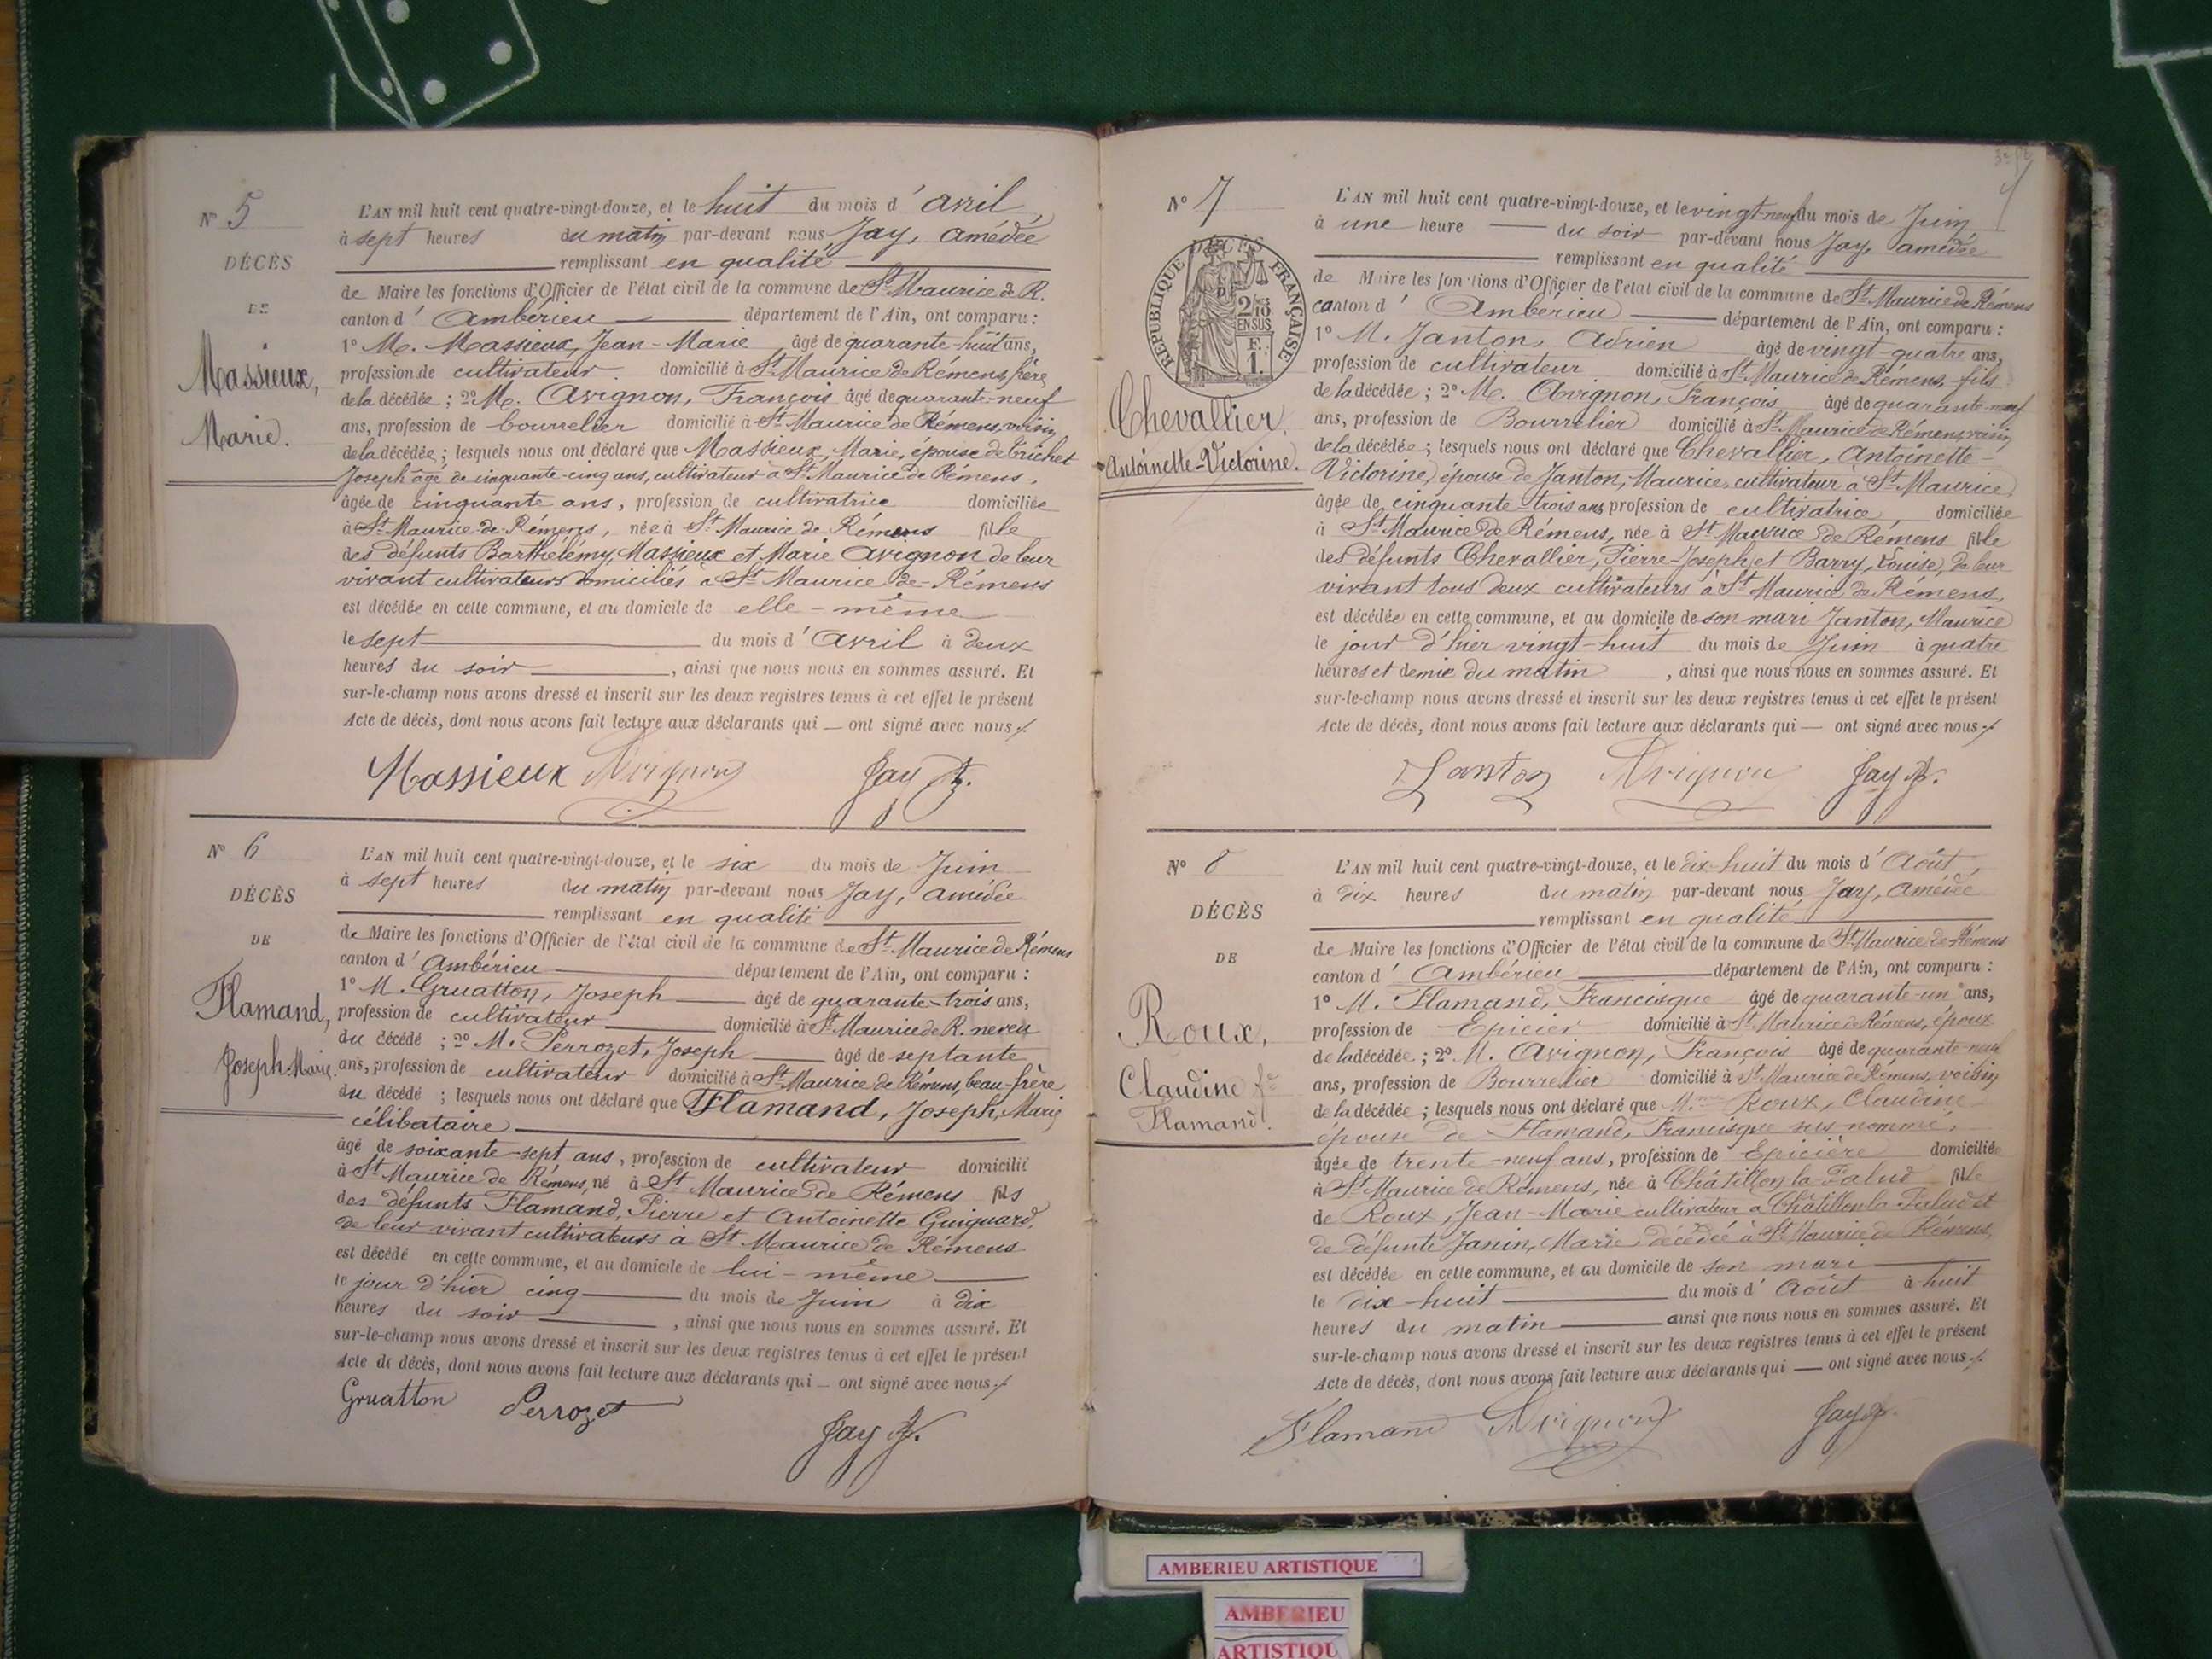 N° 5
DÉCÈS
DE
Massieux,
Marie.
L'AN mil huit cent quatre-vingt-douze, et le huit du mois d'avril
à sept heures du matin par-devant nous Jay, Amédée
remplissant en qualité
de Maire les fonctions d'Officier de l'état civil de la commune de St Maurice de R.
canton d'Ambérieu département de l'Ain, ont comparu :
1° M. Massieux, Jean-Marie, âgé de quarante-huit ans,
profession de cultivateur domicilié à St Maurice de Rémens, frère
de la décédée ; 2° M. Avignon, François âgé de quarante-neuf
ans, profession de bourrelier domicilié à St Maurice de Rémens, voisin
de la décédée ; lesquels nous ont déclaré que Massieux, Marie, épouse de Brichet
Joseph âgé de cinquante-cinq ans, cultivateur à St Maurice de Rémens,
âgée de cinquante ans, profession de cultivatrice domiciliée
à St Maurice de Rémens, née à St Maurice de Rémens fille
des défunts Barthélémy Massieux et Marie Avignon de leur
vivant cultivateurs domiciliés à St Maurice-de-Rémens
est décédée en cette commune, et au domicile de elle-même
le sept du mois d'Avril à deux
heures du soir, ainsi que nous nous en sommes assuré. Et
sur-le-champ nous avons dressé et inscrit sur les deux registres tenus à cet effet le présent
Acte de décès, dont nous avons fait lecture aux déclarants qui ont signé avec nous
Massieux Avignon Jay
N° 6
DÉCÈS
DE
Flamand,
Joseph-Marie.
L'AN mil huit cent quatre-vingt-douze, et le six du mois de Juin
à sept heures du matin par-devant nous Jay, Amédée
remplissant en qualité
de Maire les fonctions d'Officier de l'état civil de la commune de St Maurice de Rémens
canton d'Ambérieu département de l'Ain, ont comparu :
1° M. Gruatton, Joseph âgé de quarante-trois ans,
profession de cultivateur domicilié à St Maurice de R. neveu
du décédé ; 2° M. Perrozet, Joseph âgé de septante
ans, profession de cultivateur domicilié à St Maurice de Rémens, beau-frère
du décédé ; lesquels nous ont déclaré que Flamand, Joseph, Marie
célibataire
âgé de soixante-sept ans, profession de cultivateur domicilié
à St Maurice de Rémens, né à St Maurice de Rémens fils
des défunts Flamand, Pierre et Antoinette Guiguard,
de leur vivant cultivateurs à St Maurice de Rémens
est décédé en cette commune, et au domicile de lui-même
le jour d'hier cinq du mois de Juin à dix
heures du soir, ainsi que nous nous en sommes assuré. Et
sur-le-champ nous avons dressé et inscrit sur les deux registres tenus à cet effet le présent
Acte de décès, dont nous avons fait lecture aux déclarants qui ont signé avec nous
Gruatton Perrozet Jay
N° 7
DÉCÈS
RÉPUBLIQUE FRANÇAISE
2/10 EN SUS
F. 1.
Chevallier,
Antoinette-Victorine.
L'AN mil huit cent quatre-vingt-douze, et le vingt-neuf du mois de Juin
à une heure du soir par-devant nous Jay, Amédée
remplissant en qualité
de Maire les fonctions d'Officier de l'état civil de la commune de St Maurice de Rémens
canton d'Ambérieu département de l'Ain, ont comparu :
1° M. Janton, Adrien âgé de vingt-quatre ans,
profession de cultivateur domicilié à St Maurice de Rémens, fils
de la décédée ; 2° M. Avignon, François âgé de quarante-neuf
ans, profession de Bourrelier domicilié à St Maurice de Rémens, voisin
de la décédée ; lesquels nous ont déclaré que Chevallier, Antoinette-
Victorine, épouse de Janton, Maurice, cultivateur à St Maurice,
âgée de cinquante-trois ans, profession de cultivatrice domiciliée
à St Maurice de Rémens, née à St Maurice de Rémens fille
des défunts Chevallier, Pierre-Joseph et Barry, Louise, de leur
vivant tous deux cultivateurs à St Maurice de Rémens,
est décédée en cette commune, et au domicile de son mari Janton, Maurice
le jour d'hier vingt-huit du mois de Juin à quatre
heures et demie du matin, ainsi que nous nous en sommes assuré. Et
sur-le-champ nous avons dressé et inscrit sur les deux registres tenus à cet effet le présent
Acte de décès, dont nous avons fait lecture aux déclarants qui ont signé avec nous
Janton Avignon Jay
N° 8
DÉCÈS
DE
Roux,
Claudine fe
Flamand.
L'AN mil huit cent quatre-vingt-douze, et le dix-huit du mois d'Août,
à dix heures du matin par-devant nous Jay, Amédée
remplissant en qualité
de Maire les fonctions d'Officier de l'état civil de la commune de St Maurice de Rémens
canton d'Ambérieu département de l'Ain, ont comparu :
1° M. Flamand, Francisque âgé de quarante-un ans,
profession de Epicier domicilié à St Maurice de Rémens, époux
de la décédée ; 2° M. Avignon, François âgé de quarante-neuf
ans, profession de Bourrelier domicilié à St Maurice de Rémens, voisin
de la décédée ; lesquels nous ont déclaré que Mme Roux, Claudine
épouse de Flamand, Francisque sus-nommé,
âgée de trente-neuf ans, profession de Epicière domiciliée
à St Maurice de Rémens, née à Châtillon la Palud fille
de Roux, Jean-Marie cultivateur à Châtillon la Palud et
de défunte Janin, Marie, décédée à St Maurice de Rémens,
est décédée en cette commune, et au domicile de son mari
le dix-huit du mois d'Août à huit
heures du matin ainsi que nous nous en sommes assuré. Et
sur-le-champ nous avons dressé et inscrit sur les deux registres tenus à cet effet le présent
Acte de décès, dont nous avons fait lecture aux déclarants qui ont signé avec nous
Flamand Avignon Jay
AMBERIEU ARTISTIQUE
AMBERIEU
ARTISTIQU